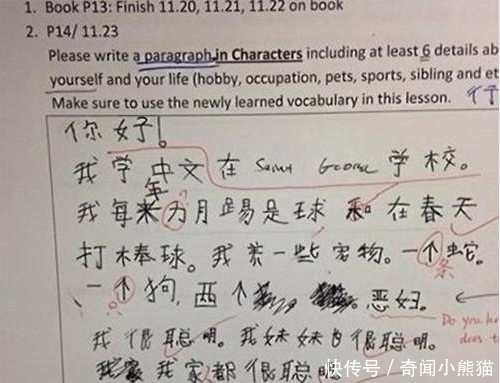 1. Book P13: Finish 11.20, 11.21, 11.22 on book
2. P14/ 11.23
Please write a paragraph in Characters including at least 6 details ab
yourself and your life (hobby, occupation, pets, sports, sibling and et
Make sure to use the newly learned vocabulary in this lesson.
你好!
我学中文在 Saint George 学校。
年?
我每米力月踢是球和在春天
打棒球。我养一些宠物。一个蛇。
条
?
一个狗,西个 恶妇。
Do you
does t
我很聪明。我妹妹白很聪明。
我家都很聪明
快传号/奇闻小熊猫